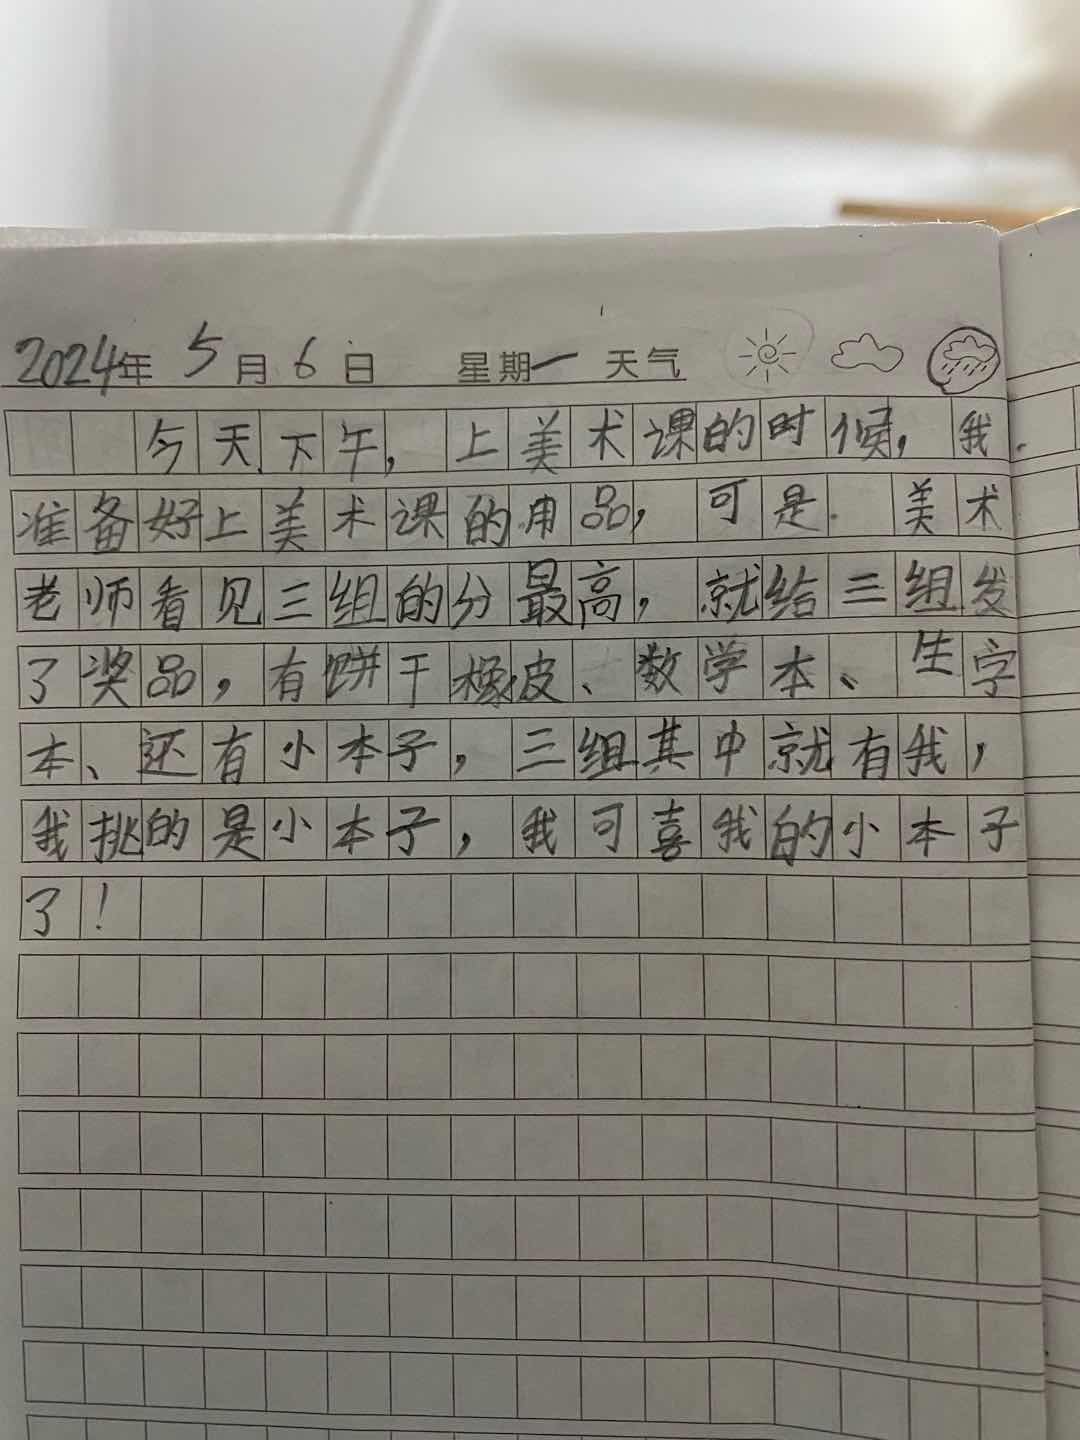 2024年 5月 6日 星期一 天气
今天下午,上美术课的时候,我
准备好上美术课的用品,可是.美术
老师看见三组的分最高,就给三组发
了奖品,有饼干橡皮、数学本、生字
本、还有小本子,三组其中就有我,
我挑的是小本子,我可喜我的小本子
了!